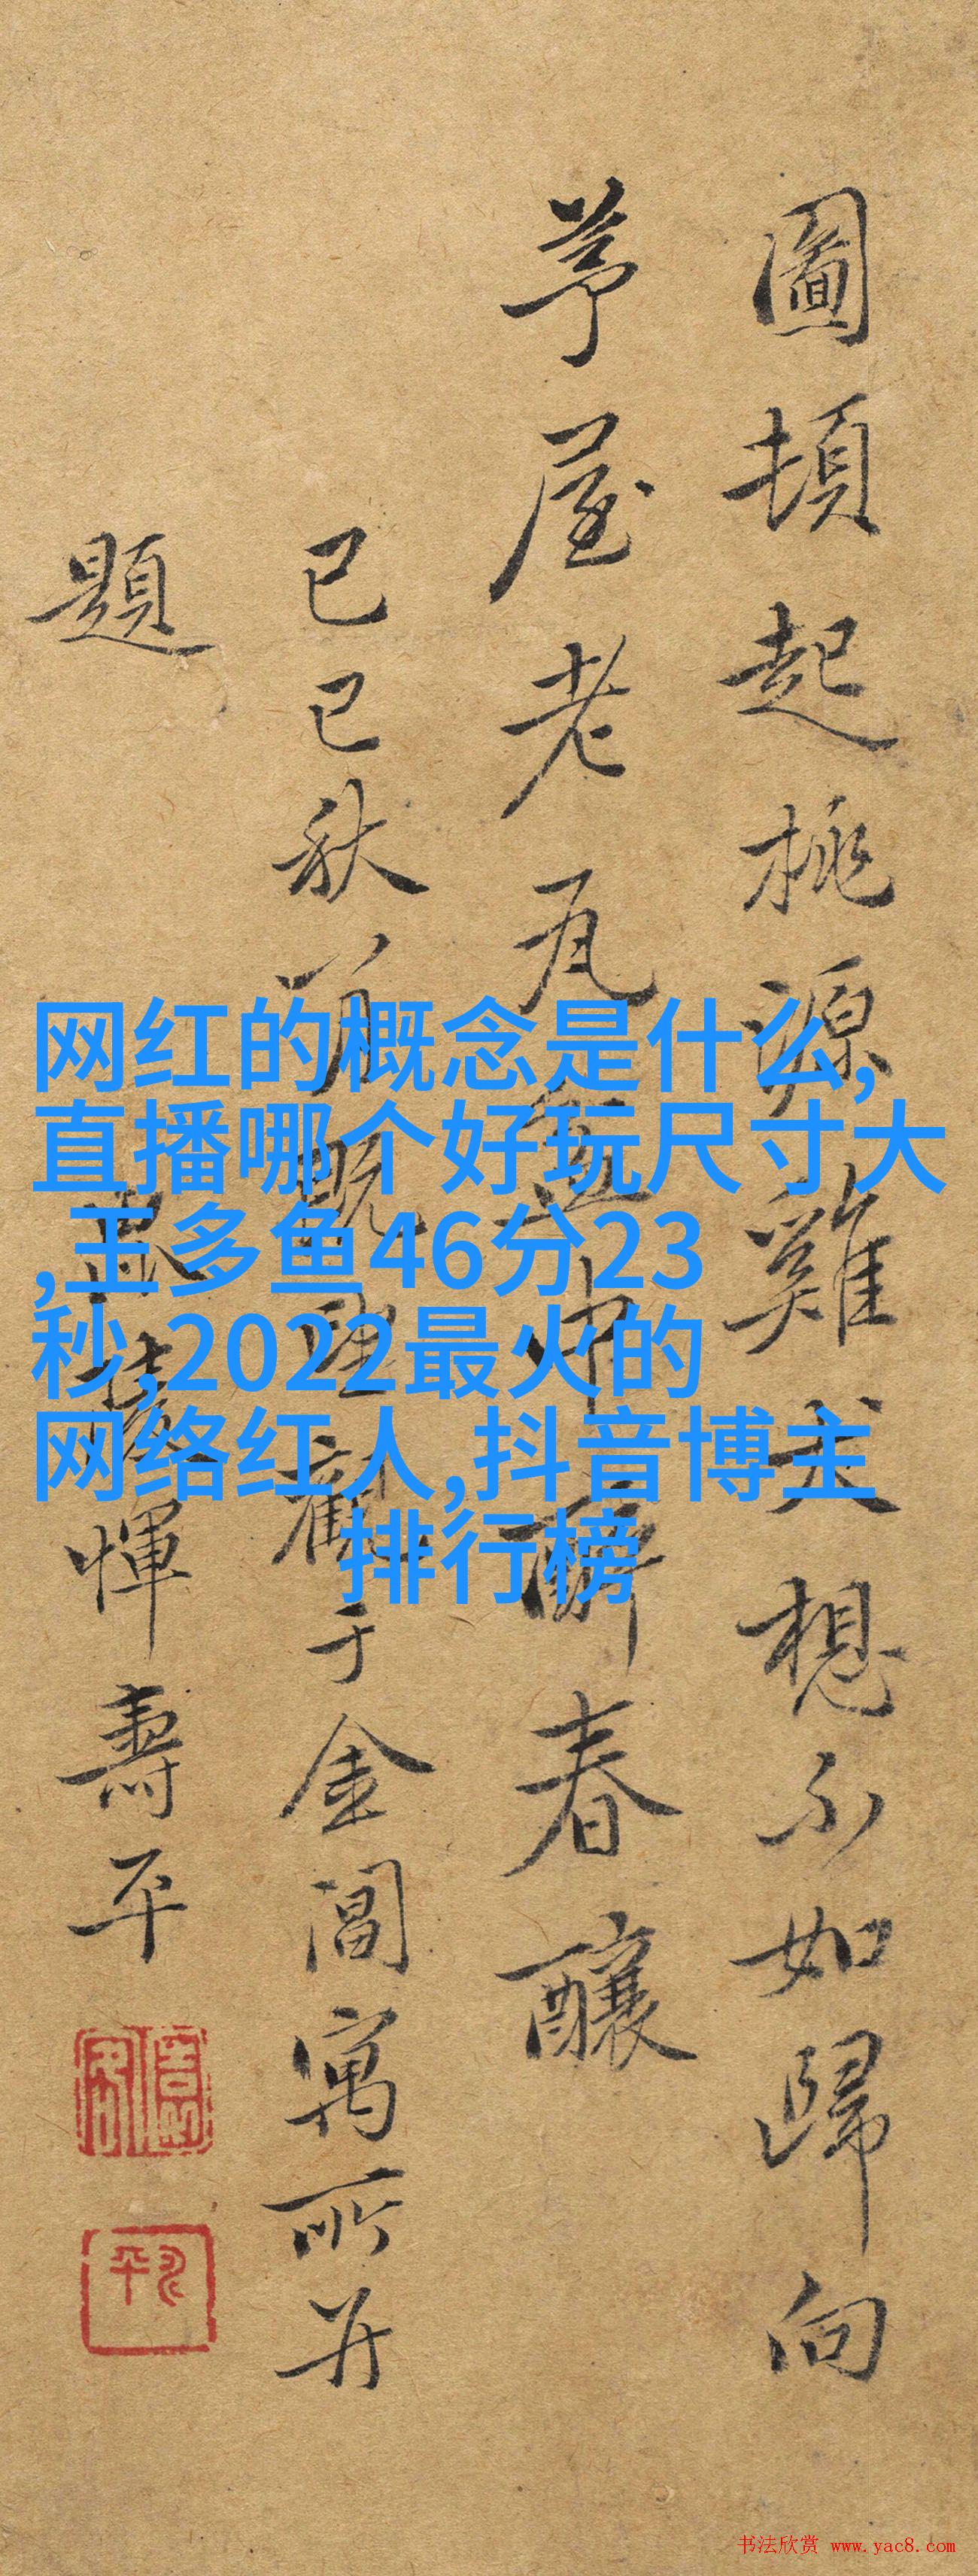 圖頓起桃源雞犬想不如歸向
茅屋老瓦盆中醉春釀
己巳秋八月既望觀于金閶寓所并
題
陵惲壽平
网红的概念是什么,
直播哪个好玩尺寸大
,王多鱼46分23
秒,2022最火的
网络红人,抖音博主
排行榜
书法欣赏 www.yac8.com